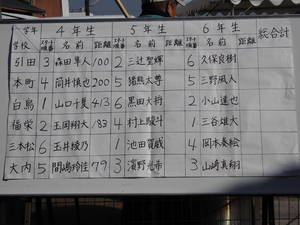 学年 4年生 5年生 6年生 総合計
学校 スタート順番 名前 距離 スタート順番 名前 距離 スタート順番 名前 距離
引田 3 森田隼人 100 2 三辻聖輝 6 久保良樹
本町 4 筒井慎也 200 5 猪熊太尊 5 三野颯人
白鳥 1 山口千夏 413 6 黒田大将 2 小山達也
福栄 2 王岡翔大 183 4 村上駿斗 1 三谷雄大
三本松 6 玉井綾乃 1 池田賢威 4 岡本奏絵
大内 5 間嶋玲佳 79 3 濱野光希 3 山崎真翔